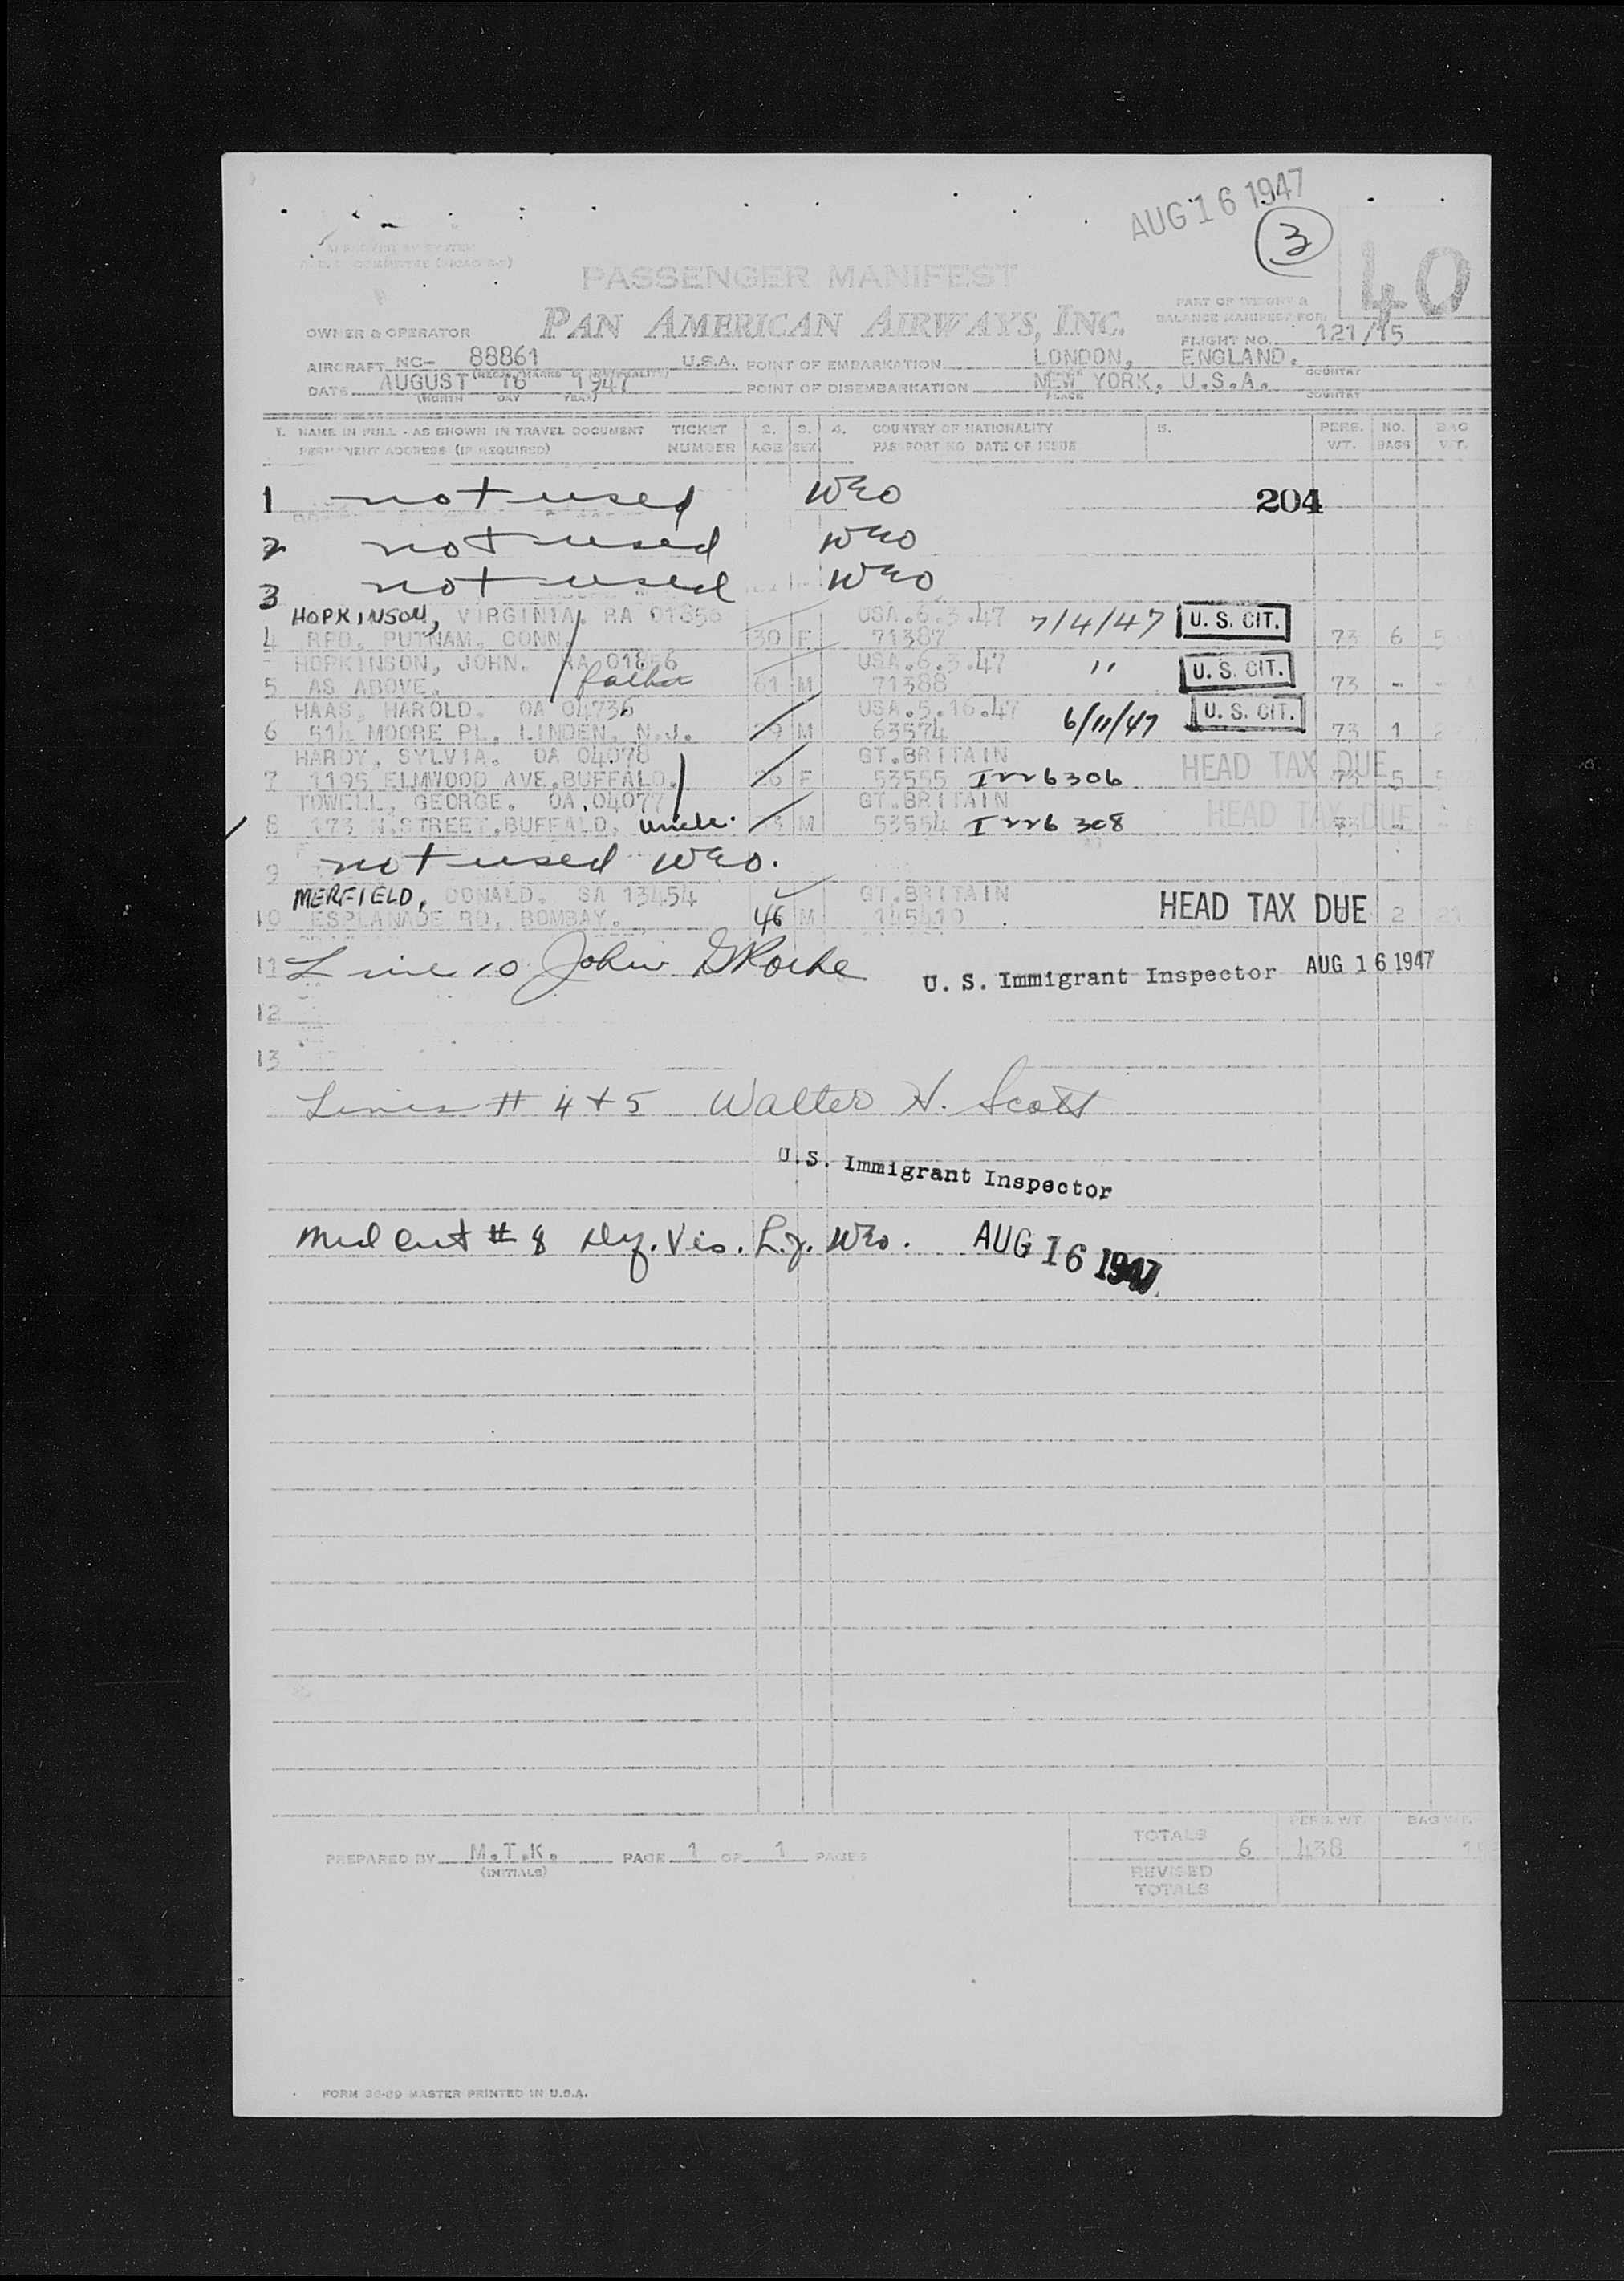 AUG 16 1947
3
40
PASSENGER MANIFEST
PAN AMERICAN AIRWAYS, INC.
PART OF WEIGHT &
BALANCE MANIFEST FOR
OWNER & OPERATOR
FLIGHT NO. 121/15
AIRCRAFT NC- 88861 U.S.A. POINT OF EMBARKATION LONDON, ENGLAND.
COUNTRY
DATE AUGUST 16 1947 POINT OF DISEMBARKATION NEW YORK, U.S.A.
(MONTH DAY YEAR) PLACE COUNTRY
1. NAME IN FULL - AS SHOWN IN TRAVEL DOCUMENT TICKET 2. 3. 4. COUNTRY OF NATIONALITY 5. PERS. NO. BAG
PERMANENT ADDRESS (IF REQUIRED) NUMBER AGE SEX PASSPORT NO DATE OF ISSUE WT. BAGS WT.
1 not used WEO 204
2 not used WEO
3 not used WEO
HOPKINSON, VIRGINIA. RA 01856 USA.6.3.47 7/4/47 U. S. CIT.
4 RFD, PUTNAM, CONN. 30 F 71387 73 6 5
HOPKINSON, JOHN. RA 01856 USA.6.3.47 " U. S. CIT.
5 AS ABOVE. father 61 M 71388 73 - -
HAAS, HAROLD. OA 04736 USA.5.16.47 6/11/47 U. S. CIT.
6 MOORE PL. LINDEN, N.J. M 63574 73 1 2
HARDY, SYLVIA. OA 04078 GT.BRITAIN HEAD TAX DUE
7 1195 ELMWOOD AVE.BUFFALO. 26 F 53555 6306 73 5 5
TOWELL, GEORGE. OA,04077 GT.BRITAIN HEAD TAX DUE
8 173 N.STREET,BUFFALO, uncle. M 53554 6308 73 -
9 not used WEO.
MERFIELD, DONALD. SA 13454 GT.BRITAIN HEAD TAX DUE
10 ESPLANADE RD, BOMBAY. 46 M 145410 2
11 Line 10 John U. S. Immigrant Inspector AUG 16 1947
12
13
Lines # 4 + 5 Walter H. Scott
U.S. Immigrant Inspector
Med Cert # 8 Vis. WEO. AUG 16 1947
TOTALS 6 PERS. WT 438 BAG WT.
PREPARED BY M.T.K. PAGE 1 OF 1 PAGES
(INITIALS)
REVISED
TOTALS
FORM MASTER PRINTED IN U.S.A.